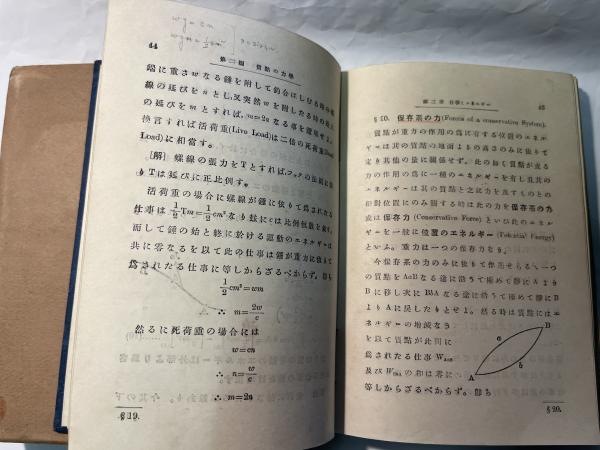 44
第二編 質點の力學
端に重さ w なる錘を附して釣合はしむる時の螺
線の延びを n とし、又突然 w を附したる時の最大
の延びを m とすれば、m=2n なる事を證明せよ。
換言すれば活荷重(Live Load)は二倍の死荷重(Dead
Load)に相當す。
[解] 螺線の張力を T とすれば、フックの法則に
よ T は延びに正比例す。
活荷重の場合に螺線が錘に依りて爲されたる
仕事は 1/2 Tm = 1/2 cm² なり、玆に c は比例恒數と
而して錘の始と終に於ける運動のエネルギーは
共に零なるを以て此の仕事は錘が重力に依りて
爲されたる仕事に等しからざるべからず。即ち
1/2 cm² = wm
∴ m = 2w/c
然るに死荷重の場合には
w = cn
∴ n = w/c
∴ m = 2n
§19.
第二章 仕事とエネルギー
45
§20. 保存系の力 (Forces of a conservative System).
質點が重力の作用の爲に有する位置のエネル
ギーは其の質點の地面よりの高さのみに依りて
定り其他の量に關係せず。此の如く質點が或る
力の作用の爲に一種のエネルギーを有し且其の
エネルギーは其の質點と之に力を及すものとの
相對位置にのみ關する時は此の力を保存系の力
或は保存力 (Conservative Force) といひ此のエネル
ギーを一般に位置のエネルギー (Potential Energy)
といふ。重力は一つの保存力なり。
今保存系の力のみに依りて作用せらるゝ一つ
の質點を AaB なる途に沿うて極めて靜に A より
B に移し次に BbA なる途に沿うて極めて靜に B
より A に戻したりとせよ。然る時は質點にはエ
ネルギーの增減なき
を以て質點が此間に
爲されたる仕事 WAaB
及び WBbA の和は零に
等しからざるべからず。即ち
B
a
b
A
§20.